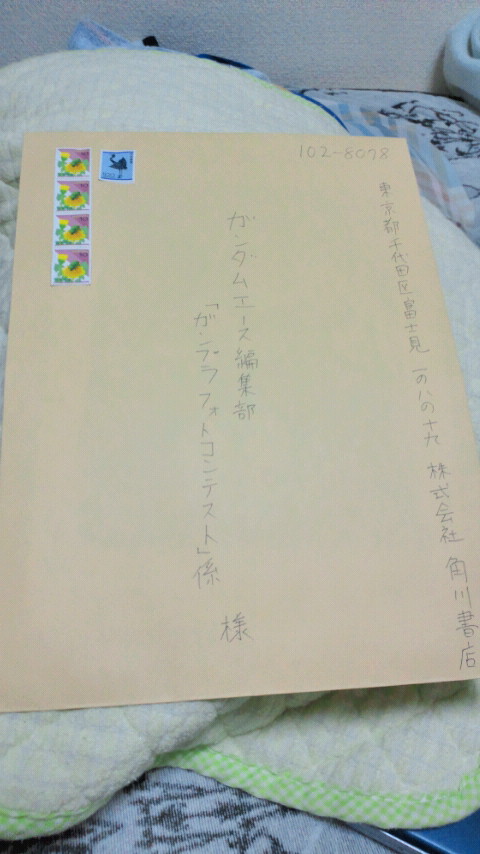 102-8078
東京都千代田区富士見 一の八の十九 株式会社 角川書店
ガンダムエース編集部
「ガンプラフォトコンテスト」係 様